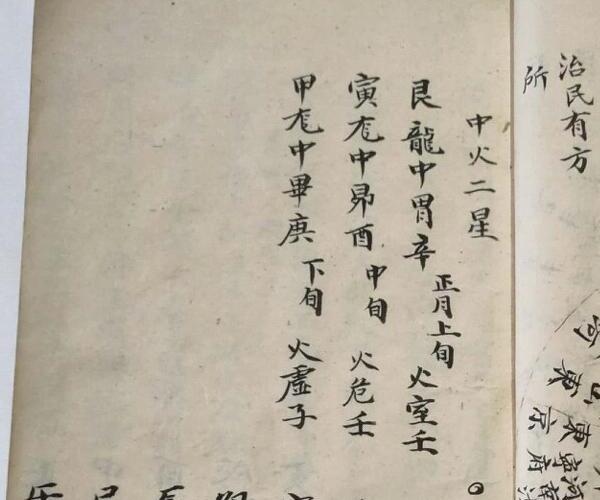 治民有方
所
中火二星
艮龍中胃辛 正月上旬 火室壬
寅尨中昴酉 中旬 火危壬
甲尨中畢庚 下旬 火虛子